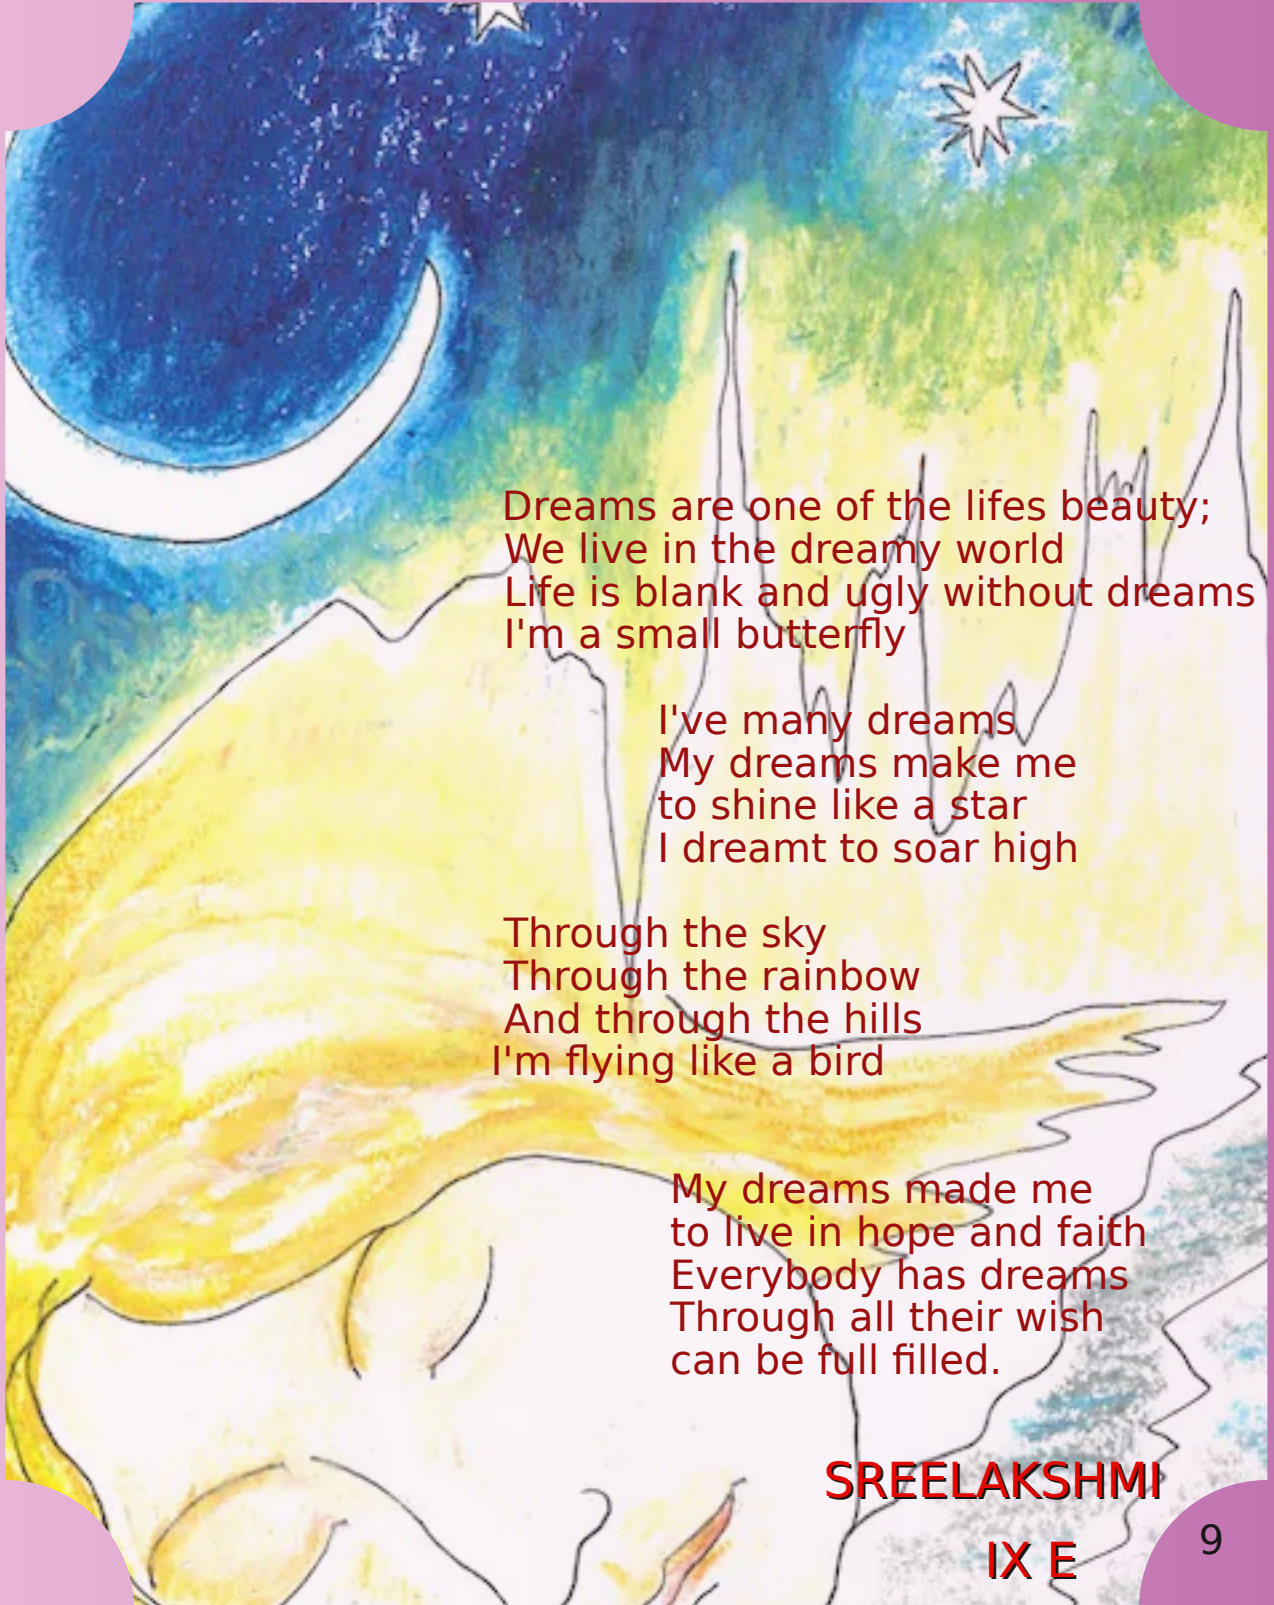 Dreams are one of the lifes beauty;
We live in the dreamy world
Life is blank and ugly without dreams
I'm a small butterfly
I've many dreams
My dreams make me
to shine like a star
I dreamt to soar high
Through the sky
Through the rainbow
And through the hills
I'm flying like a bird
My dreams made me
to live in hope and faith
Everybody has dreams
Through all their wish
can be full filled.
SREELAKSHMI
IX E
9